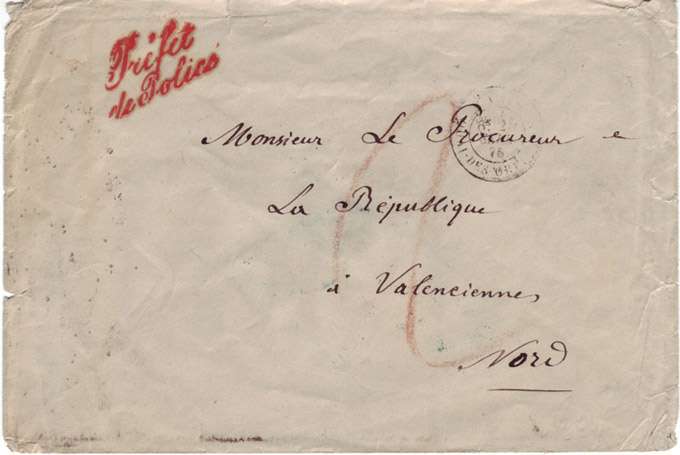 Préfet
de Police
Monsieur Le Procureur e
La République
à Valenciennes
Nord
76